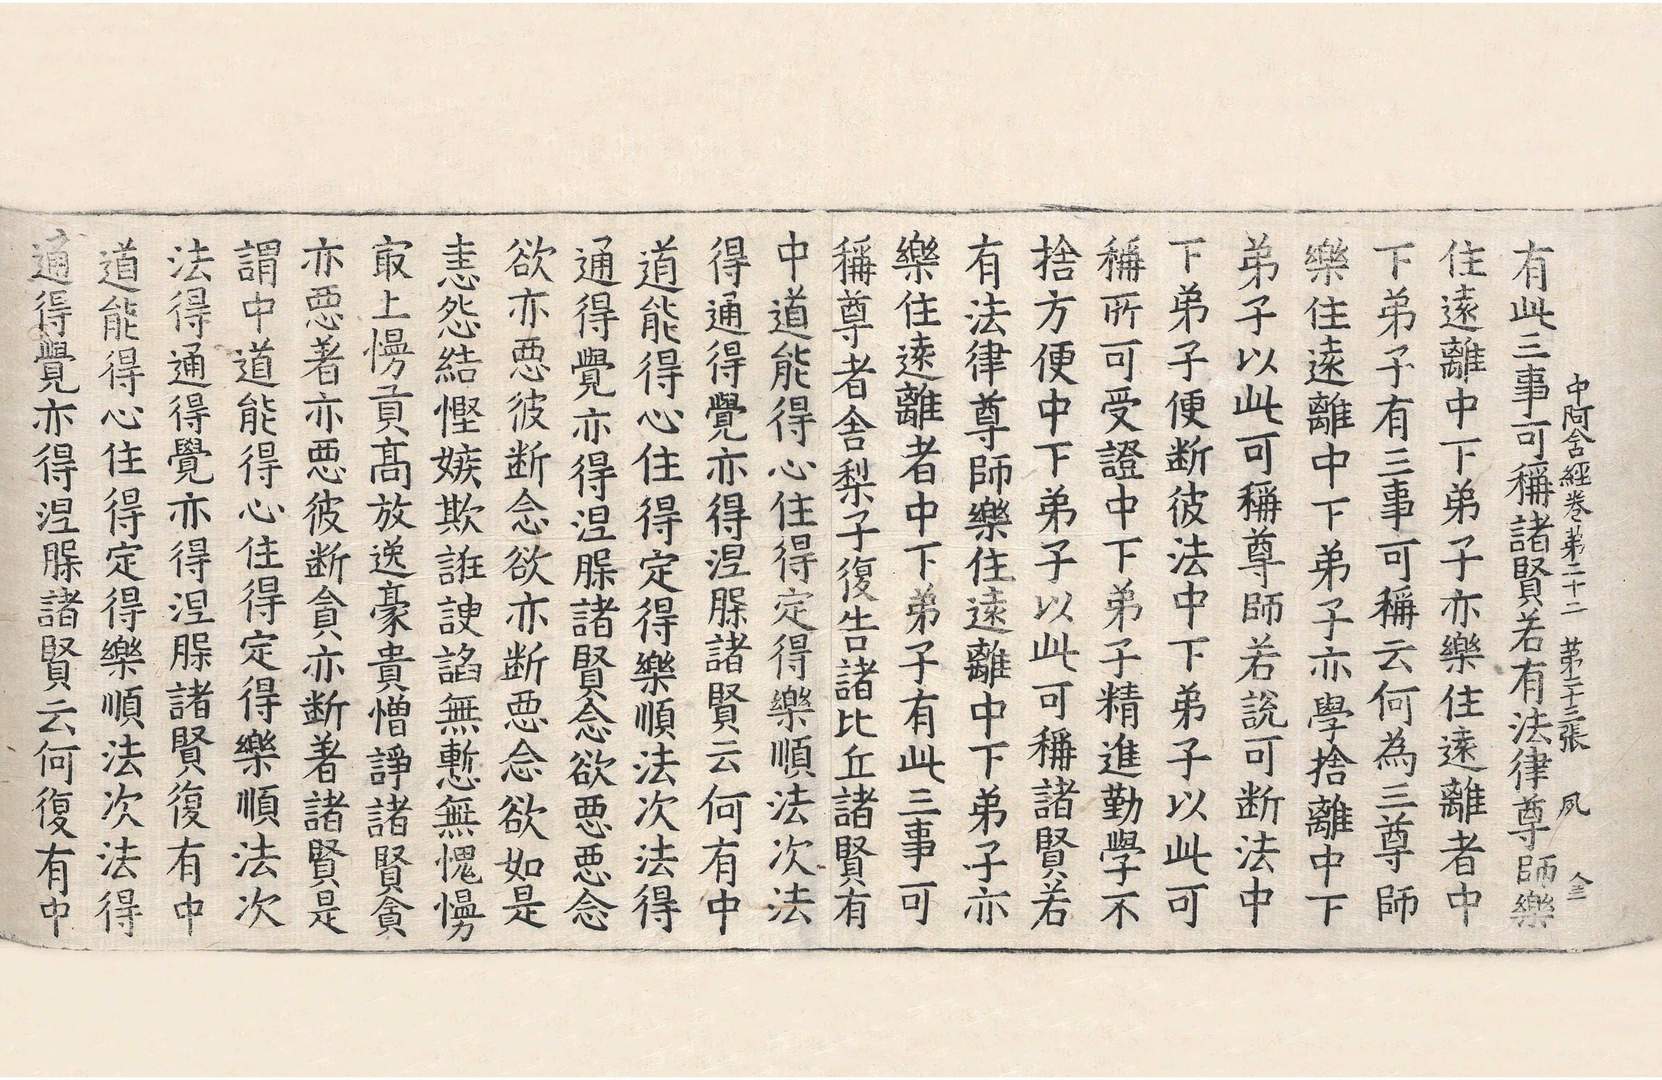 中阿含經卷第二十二 第二十三張 夙
有此三事可稱諸賢若有法律尊師樂
住遠離中下弟子亦樂住遠離者中
下弟子有三事可稱云何為三尊師
樂住遠離中下弟子亦學捨離中下
弟子以此可稱尊師若說可断法中
下弟子便断彼法中下弟子以此可
稱所可受證中下弟子精進勤學不
捨方便中下弟子以此可稱諸賢若
有法律尊師樂住遠離中下弟子亦
樂住遠離者中下弟子有此三事可
稱尊者舍梨子復告諸比丘諸賢有
中道能得心住得定得樂順法次法
得通得覺亦得涅槃諸賢云何有中
道能得心住得定得樂順法次法得
通得覺亦得涅槃諸賢念欲惡惡念
欲亦惡彼断念欲亦断惡念欲如是
恚怨結慳嫉欺誑諛諂無慙無愧慢
㝡上慢貢高放逸豪貴憎諍諸賢貪
亦惡著亦惡彼断貪亦断著諸賢是
謂中道能得心住得定得樂順法次
法得通得覺亦得涅槃諸賢復有中
道能得心住得定得樂順法次法得
通得覺亦得涅槃諸賢云何復有中